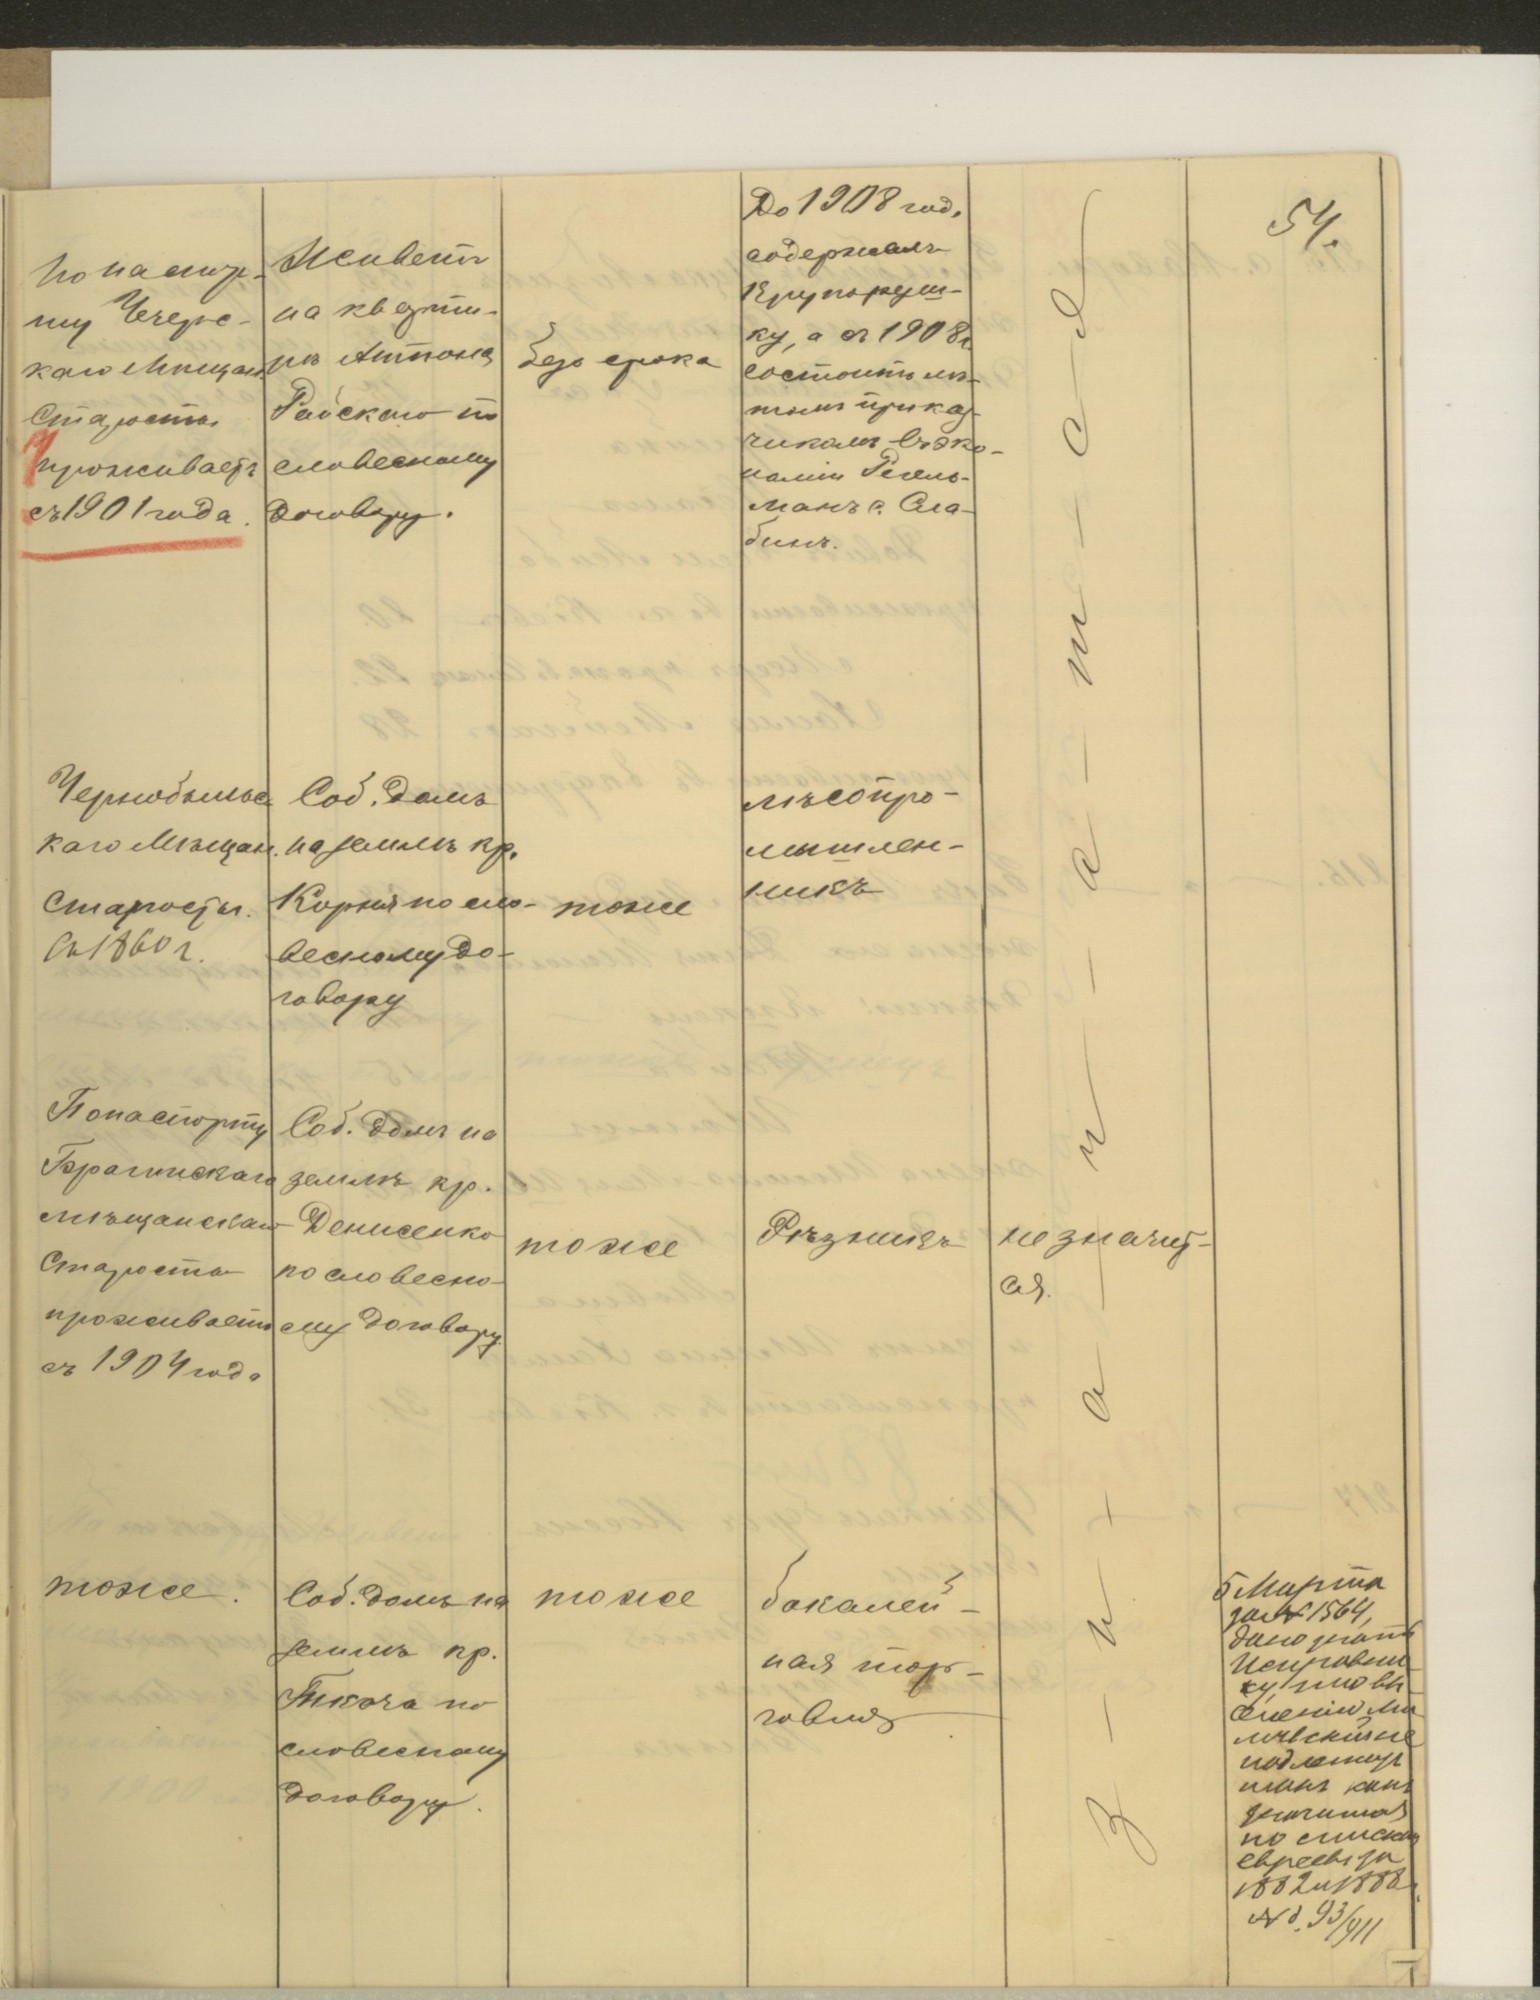 54.
По паспор-
ту Черно-
каго Мѣщан.
Старосты
проживаетъ
съ 1901 года.
Живетъ
на кварти-
рѣ Антона
Райскаго по
словесному
договору.
безъ срока
До 1908 год.
содержалъ
Крупорум-
ку, а съ 1908 г.
состоитъ лѣ-
нымъ приказ-
чикомъ въ эко-
номіи
манъ с. Сла-
бинъ.
Чернобыльс
каго Мѣщан.
Старосты.
Съ 1860 г.
Соб. домъ
на землѣ кр.
Корня по сло-
весному до-
говору
тоже
мѣсопро-
мышлен-
никъ
По паспорту
Брагинскаго
мѣщанскаго
Старосты
проживаетъ
съ 1904 года
Соб. домъ на
землѣ кр.
Денисенко
по словесно-
му договору.
тоже
Рѣзникъ
не значит-
ся.
тоже.
Соб. домъ на
землѣ кр.
Ткача по
словесному
договору.
тоже
бакалей-
ная тор-
говля
з-н-а-ч-а-т-с-я
5 Марта
за № 1564,
дано знать
Исправни-
ку, что вы-
селенію Ми
левскій не
подлежитъ
какъ
значится
по списку
евреевъ за
1882 и 1888 г.
№ д. 93/911